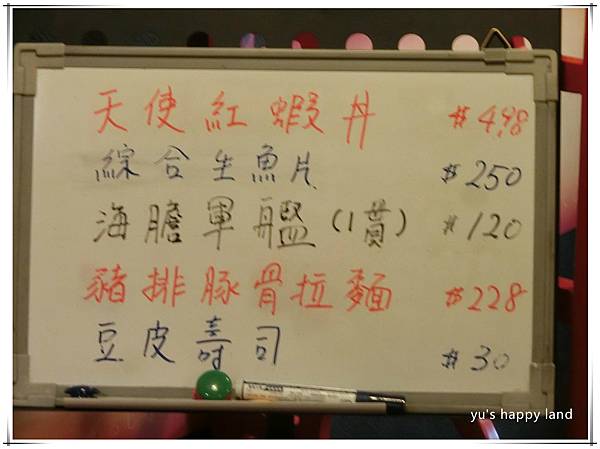 天使紅蝦丼 #498
綜合生魚片 $250
海膽軍艦(1貫) #120
豬排豚骨拉麵 $228
豆皮壽司 #30
yu's happy land